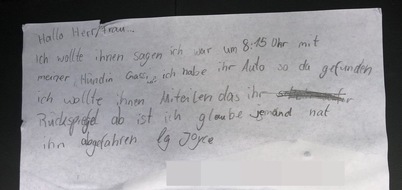 Hallo Herr/Frau...
Ich wollte ihnen sagen ich war um 8:15 Uhr mit
meiner Hündin Gassi, ich habe ihr Auto so da gefunden
ich wollte ihnen Mitteilen das ihr
Rückspiegel ab ist ich glaube jemand hat
ihn abgefahren lg Joyce